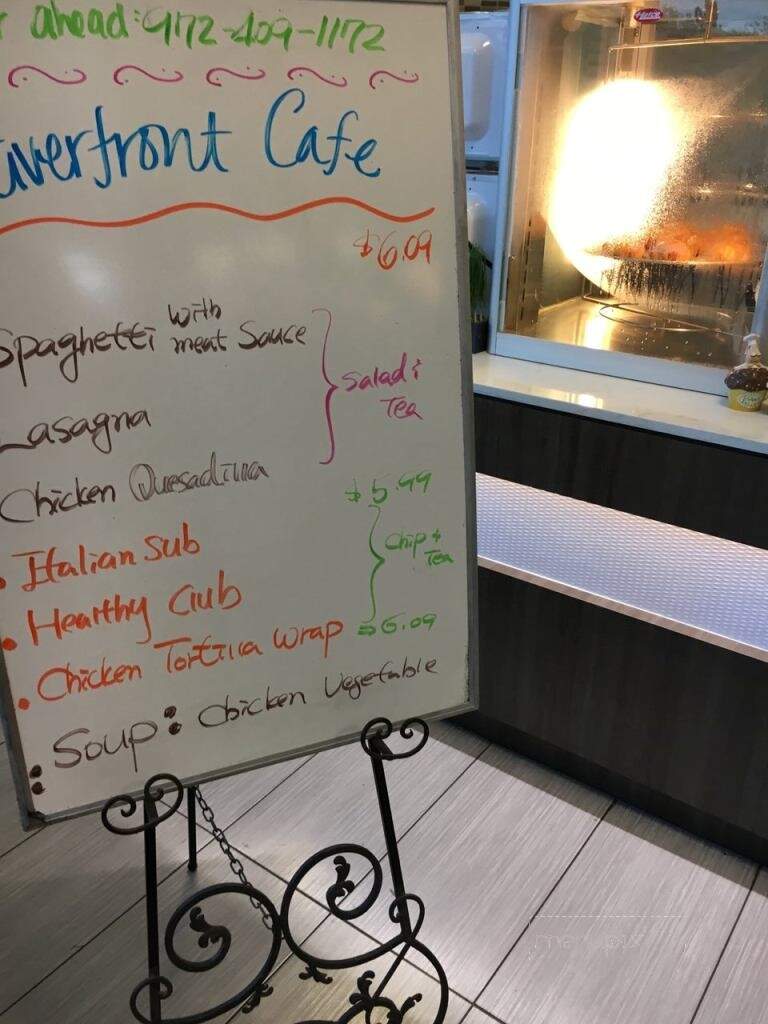 r ahead: 972-409-1172
iverfront Cafe
$6.09
Spaghetti with meat Sauce
Salad &
Tea
Lasagna
Chicken Quesadilla
$5.99
• Italian Sub
Chip &
Tea
• Healthy Club
• Chicken Tortilla Wrap $6.09
: Soup: Chicken Vegetable